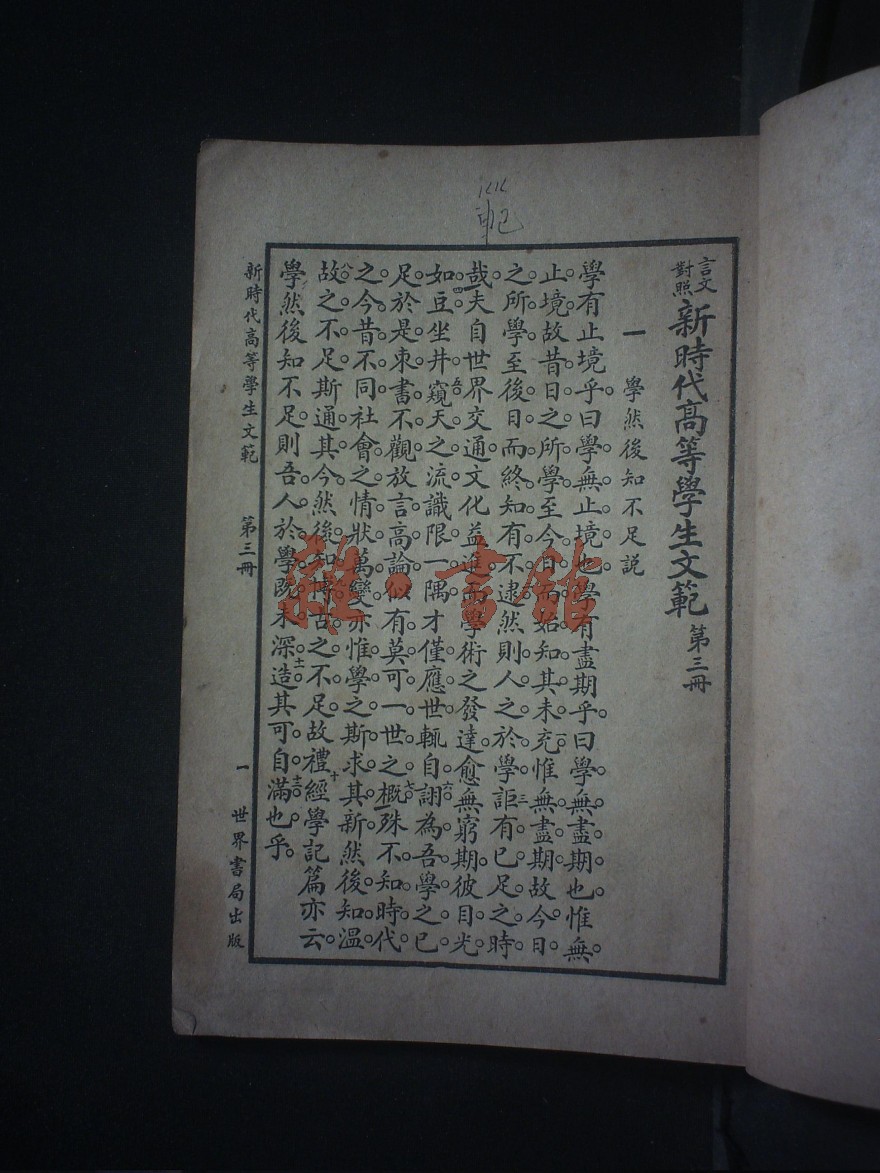 言文對照 新時代高等學生文範 第三冊
一 學然後知不足説
學有止境乎。曰學無止境也。學有盡期乎。曰學無盡期也。惟無
止境。故昔日之所學。至今日而始知其未充。惟無盡期。故今日
之所學。至後日而終知有不逮。然則人之於學。詎有已足之時
哉。夫自世界交通。文化益進。而學術之發達。愈無窮期。彼目光
如豆。坐井窺天之流。識限一隅。才僅應世。輒自詡為吾學之已
足。於是束書不觀。放言高論。似有莫可一世之概。殊不知時代
之今昔不同。社會之情狀萬變。亦惟學之斯求其新。然後知溫
故之不足。斯通其今。然後知博古之不足。故禮經學記篇亦云。
學然後知不足。則吾人於學。既未深造。其可自滿也乎。
新時代高等學生文範 第三冊 一 世界書局出版
雜·書館